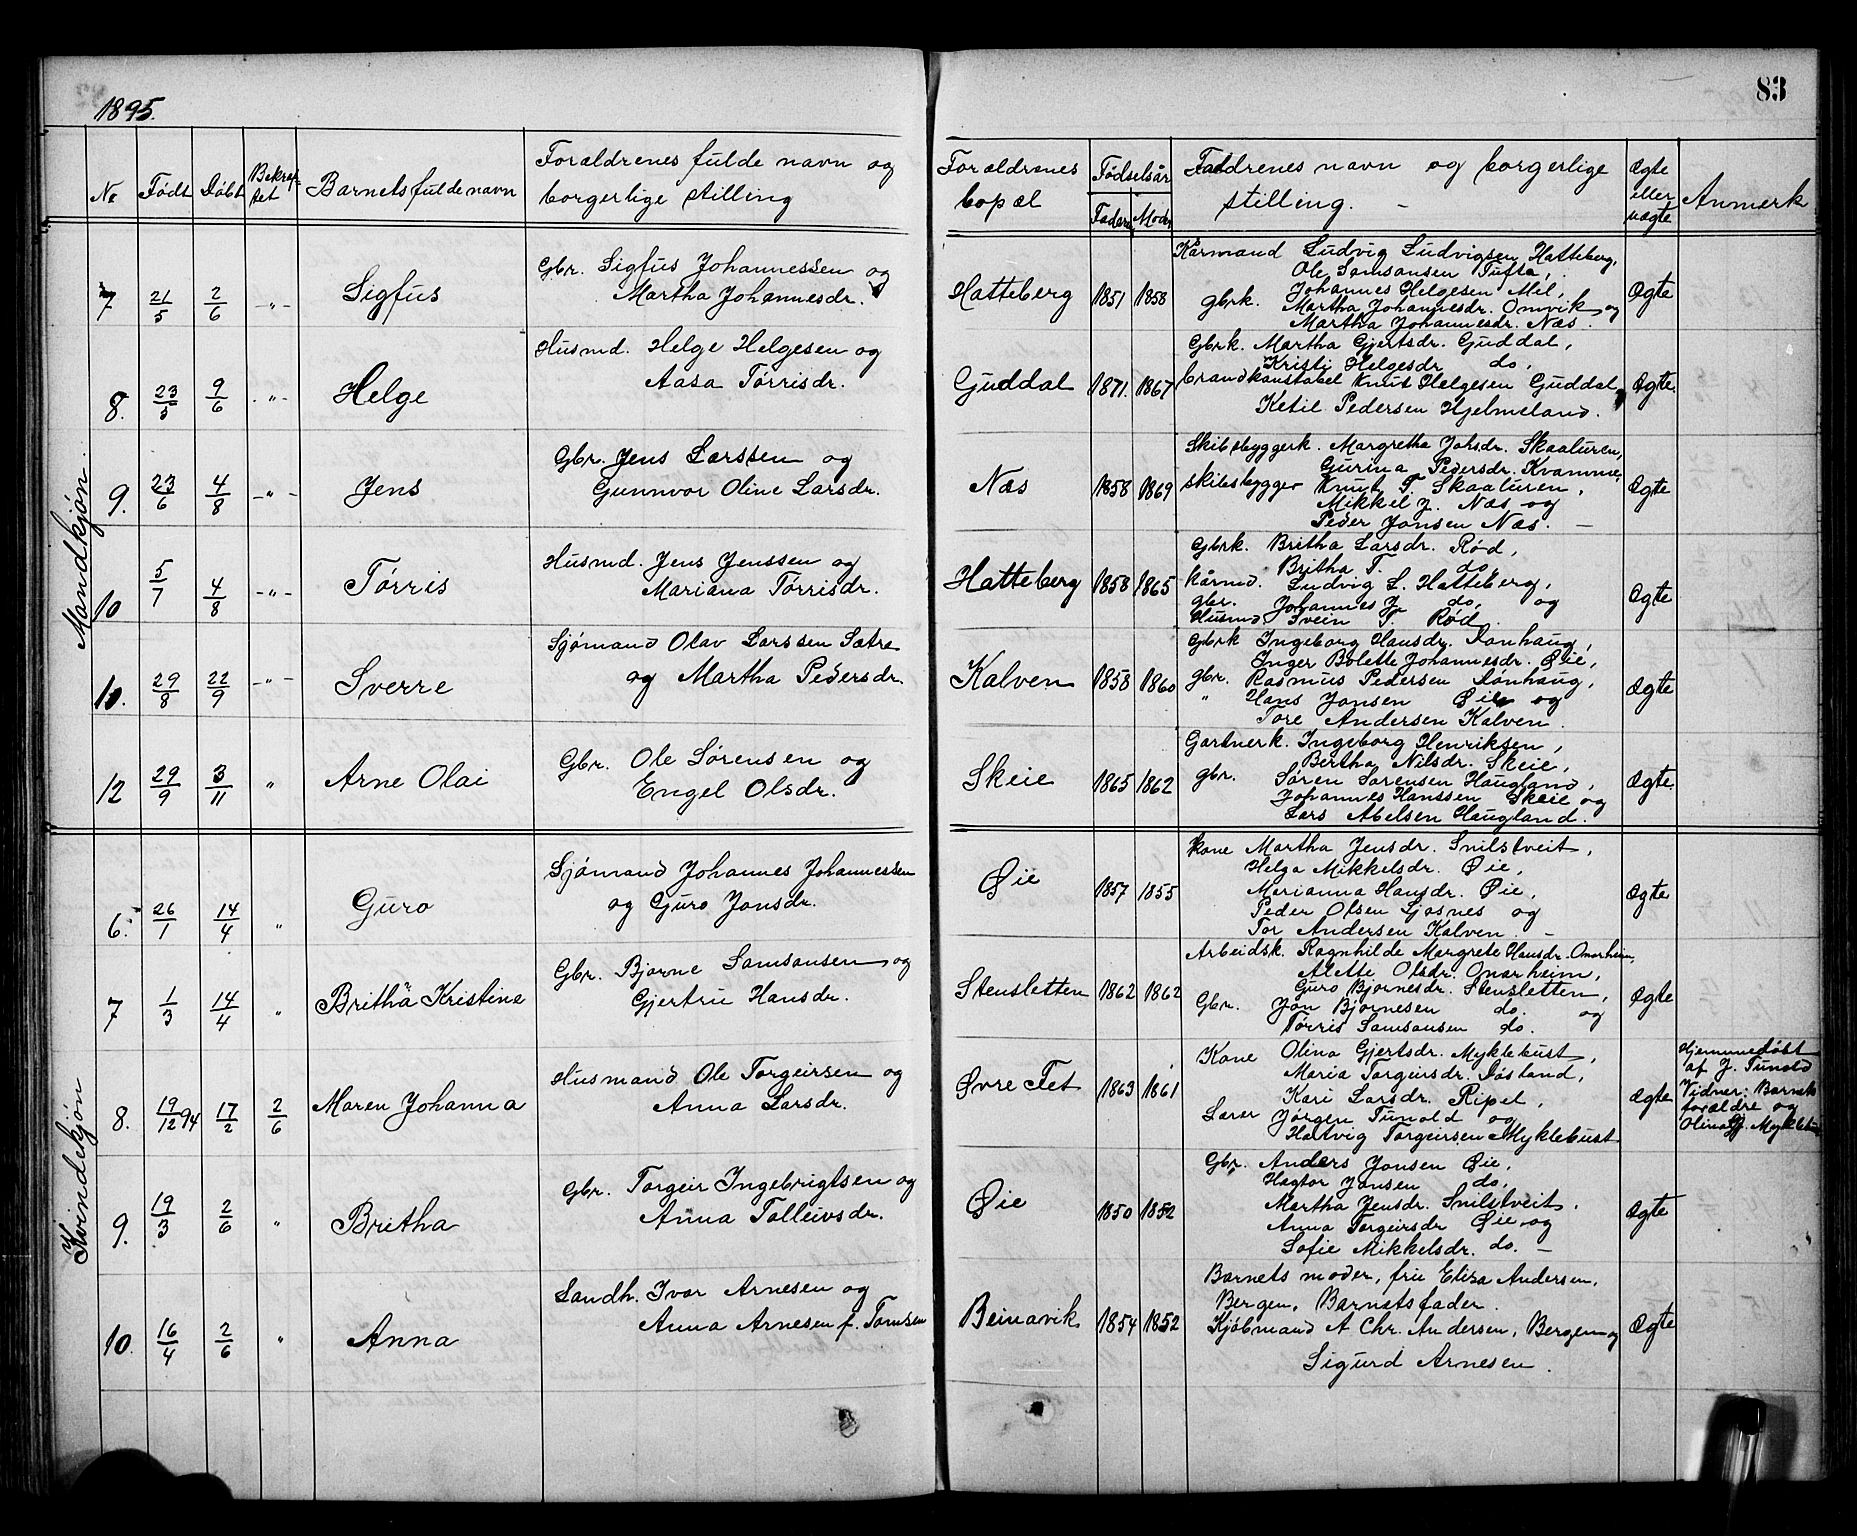 1895.
83
No Født Døbt Bekræf-tet Barnets fulde navn Forældrenes fulde navn og borgerlige stilling Forældrenes bopæl Fødselsår Faders Moders Faddrenes navn og borgerlige stilling. Ægte eller uægte Anmerk
Mandkjøn.
7 21/5 2/6 -"- Sigfus Gbr. Sigfus Johannessen og
Martha Johannesdr.
Hatteberg 1851 1858 Kårmand Ludvig Ludvigsen Hatteberg,
Ole Samsonsen Tufta,
Johannes Helgesen Mel,
gbrk. Martha Johannesdr. Omvik og
Martha Johannesdr. Næs.
Ægte
8. 23/5 9/6 -"- Helge Husmd. Helge Helgesen og
Aasa Tørrisdr.
Guddal 1871. 1867 Gbrk. Martha Gjertsdr. Guddal,
Kristi Helgesdr. do,
brandkonstabel Knut Helgesen Guddal,
Ketil Pedersen Hjelmeland.
Ægte.
9. 23/6 4/8 -"- Jens Gbr. Jens Larssen og
Gunnvor Oline Larsdr.
Næs 1858 1869 Skibsbyggerk. Margretha Johsdr. Skaaluren,
Gurina Pedersdr. Kvamme,
skibsbygger Knut T. Skaaluren,
Mikkel J. Næs og
Peder Jonsen Næs. -
Ægte
10 5/7 4/8 -"- Tørris Husmd. Jens Jenssen og
Mariana Tørrisdr.
Hatteberg 1858 1865 Gbrk. Britha Larsdr. Rød,
Britha T. do,
kårmd. Ludvig L. Hatteberg,
gbr. Johannes J. do, og
Husmd Svein T. Rød.
Ægte
10. 29/8 22/9 -"- Sverre Sjømand Olav Larssen Sætre
og Martha Pedersdr.
Kalven 1858 1860 Gbrk Ingeborg Hansdr. Lonhaug,
Inger Bolette Johannesdr. Øie,
gbr. Rasmus Pedersen Lonhaug,
" Hans Jonsen Øie og
Tore Andersen Kalven.
Ægte
12 29/9 3/11 " Arne Olai Gbr. Ole Sørensen og
Engel Olsdr.
Skeie 1865 1862 Gartnerk. Ingeborg Henriksen,
Bertha Nilsdr. Skeie,
gbr. Søren Sørensen Haugland,
Johannes Hanssen Skeie og
Lars Abelsen Haugland.
Ægte.
Kvindekjøn
6. 26/1 14/4 " Guro Sjømand Johannes Johannessen
og Guro Jonsdr.
Øie 1857 1855 Kone Martha Jensdr. Snilstveit,
Helga Mikkelsdr. Øie,
Marianna Hansdr. Øie,
Peder Olsen Ljosnes og
Tor Andersen Kalven. -
Ægte
7 1/3 14/4 " Britha Kristine Gbr. Bjorne Samsonsen og
Gjertru Hansdr.
Stensletten 1862 1862 Arbeidsk. Ragnhilde Margrete Hansdr. Onarheim,
Alette Olsdr. Onarheim,
Guro Bjornesdr. Stensletten,
Gbr. Jon Bjornesen do. og
Tørris Samsonsen do.
Ægte
8. 19/12 94 17/2 2/6 Maren Johanna Husmand Ole Torgeirsen og
Anna Larsdr.
Øvre Fet 1863 1861 Kone Olina Gjertsdr. Myklebust,
Maria Torgeirsdr. Døsland,
Kari Larsdr. Ripel,
Lærer Jørgen Tunold og
Hartvig Torgeirsen Myklebust
Ægte Hjemmedøbt
af J. Tunold
Vidner: Barnets
forældre og
Olina Gj. Myklebu
9. 19/3 2/6 " Britha Gbr. Torgeir Ingebrigtsen og
Anna Tolleivsdr.
Øie 1850 1852 Gbr. Anders Jonsen Øie,
Hegtor Jonsen do.
Martha Jensdr. Snilstveit.
Anna Torgeirsdr Øie og
Sofie Mikkelsdr. do. -
Ægte
10. 16/4 2/6 " Anna Landh. Ivar Arnesen og
Anna Arnesen f. Tomsen
Beinavik 1854 1852 Barnets moder, fru Eliza Andersen,
Bergen, Barnets fader.
Kjøbmand A Chr. Andersen, Bergen og
Sigurd Arnesen.
Ægte